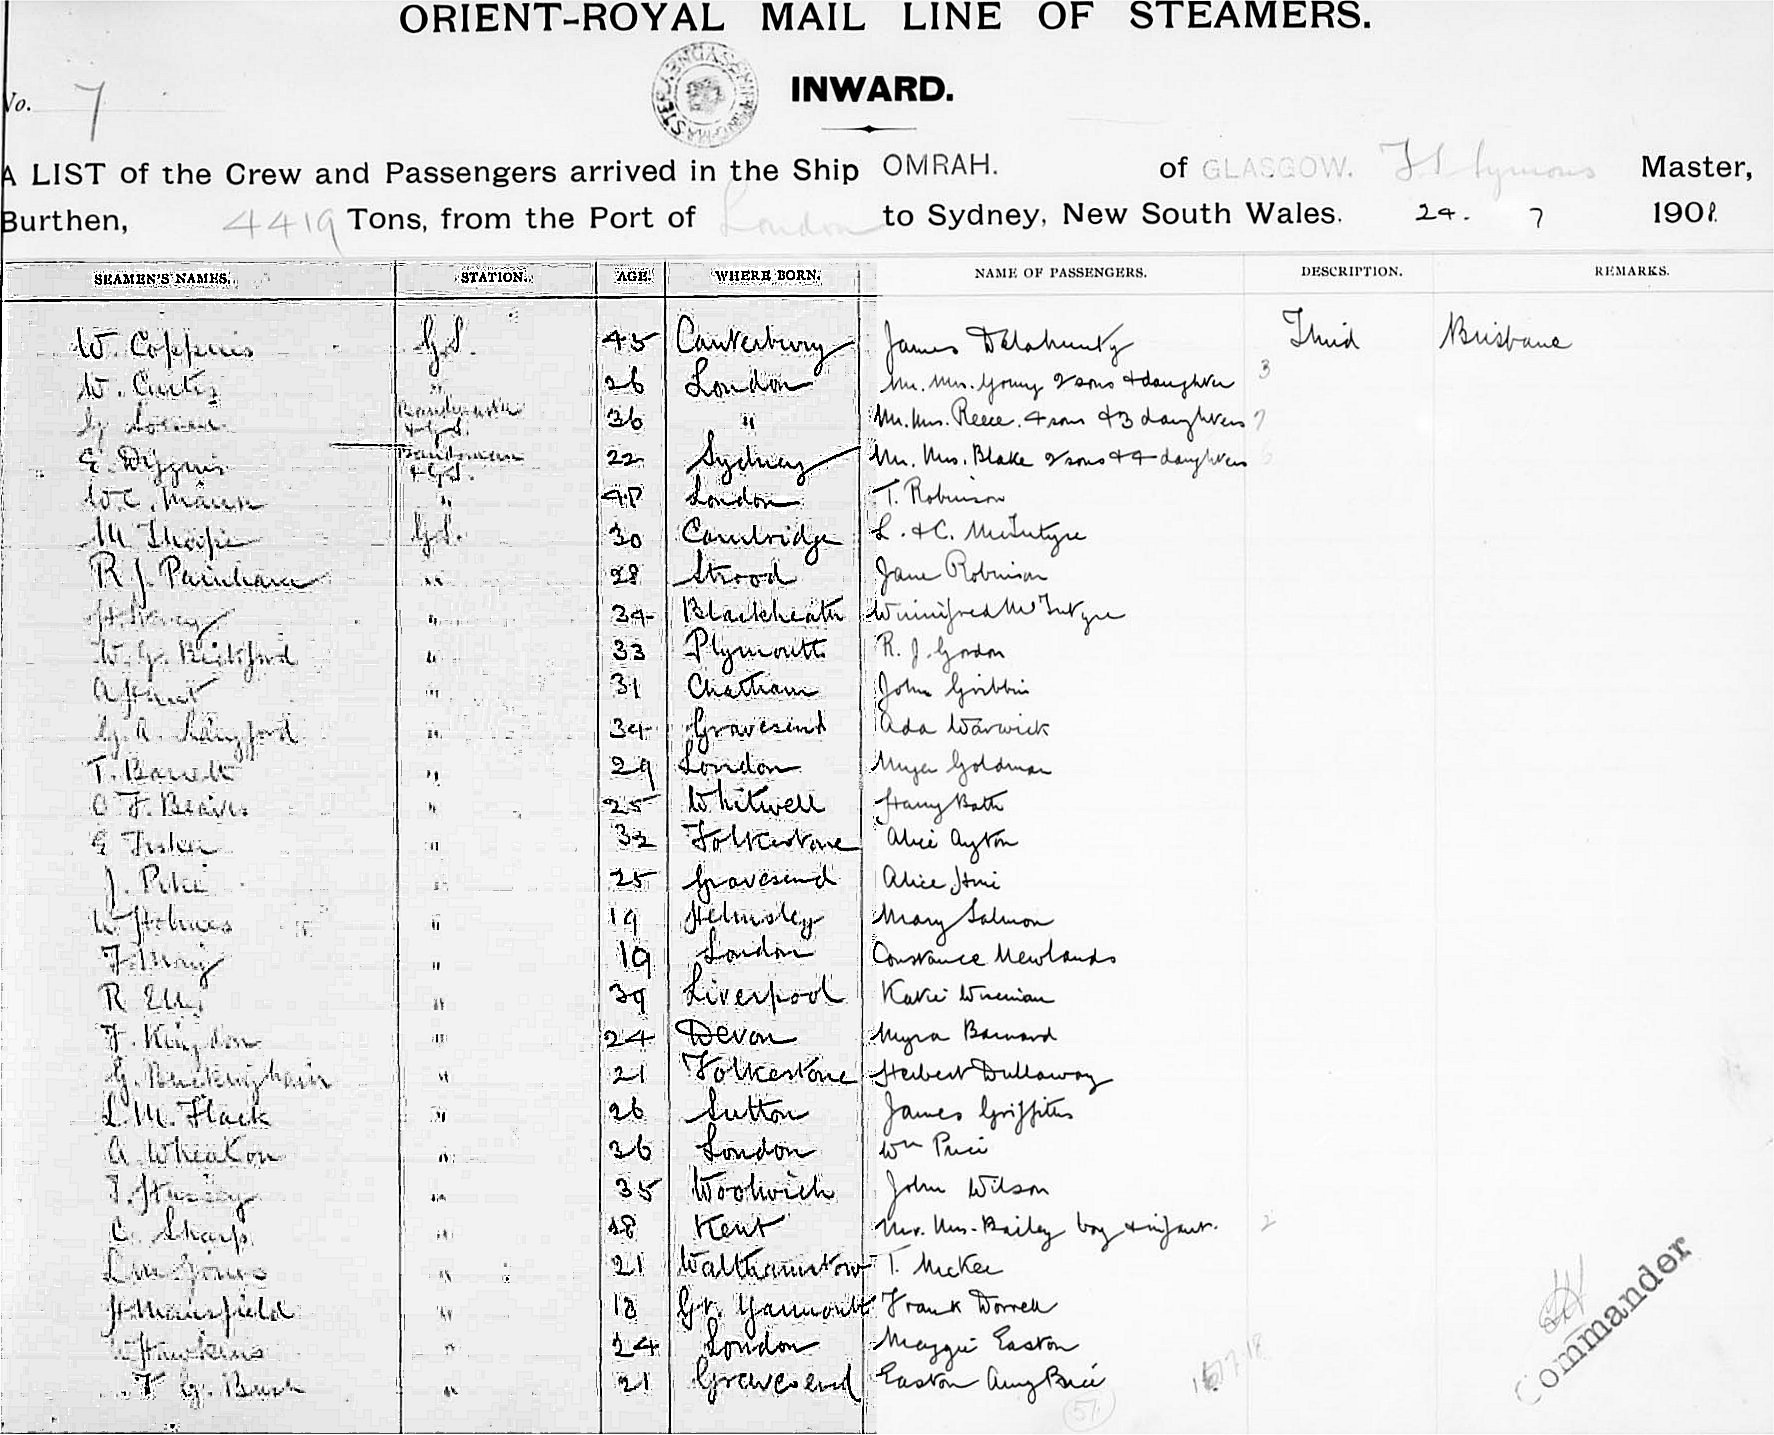 ORIENT-ROYAL MAIL LINE OF STEAMERS.
INWARD.
No. 7
A LIST of the Crew and Passengers arrived in the Ship OMRAH. of GLASGOW. Master,
Burthen, 4419 Tons, from the Port of London to Sydney, New South Wales. 24. 7 1908.
SEAMEN'S NAMES. STATION. AGE WHERE BORN. NAME OF PASSENGERS. DESCRIPTION. REMARKS.
W. Coppins G.S. 45 Canterbury James Delahunty Third Brisbane
W. Curtis " 26 London Mr. Mrs. Young 2 sons & daughter 3
Bandsman & G.S. 36 " Mr. Mrs. Reece. 4 sons & 3 daughters 7
E. Bandsman & G.S. 22 Sydney Mr. Mrs. Blake 2 sons & 4 daughters 6
W.C. Mann " 48 London T. Robinson
M. Thorpe G.S. 30 Cambridge L. & C. McIntyre
R J. Painham " 28 Strood Jane Robinson
" 34 Blackheath Winnifred McIntyre
W. G. Bickford " 33 Plymouth R. J. Gordon
A Hunt " 31 Chatham John Gribbin
G. A. Langford " 34 Gravesend Ada Warwick
T. Barrett " 29 London Myer Goldman
F. Beaves " 25 Whitwell Harry Bath
E Fisher " 32 Folkestone Alice Ayton
J. Pike " 25 Gravesend Alice Hine
W Holmes " 19 Helmsley Mary Salmon
F. May " 19 London Constance Newlands
R Ellis " 39 Liverpool Katie
F. Kingdon " 24 Devon Myra Barnard
G. Buckingham " 21 Folkestone Herbert Dullaway
L. M. Flack " 26 Sutton James Griffiths
A. Wheaton " 36 London Wm Price
" 35 Woolwich John Wilson
C. Sharp " 18 Kent Mr. Mrs. Bailey boy & infant. 2
Jones " 21 Walthamstow T. McKee
H. Mansfield " 18 Gt. Yarmouth Frank Worrell
W Hawkins " 24 London Maggie Easton
F G. Bush " 21 Gravesend Easton Amy Brice
57
Commander